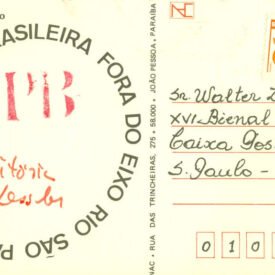 BRASILEIRA FORA DO EIXO RIO SÃO PA
PB
NAC • RUA DAS TRINCHEIRAS, 275 • 58.000 • JOÃO PESSOA, PARAÍBA
Sr. Walter Z
XVI Bienal
Caixa Pos
S. Paulo -
0 1 0